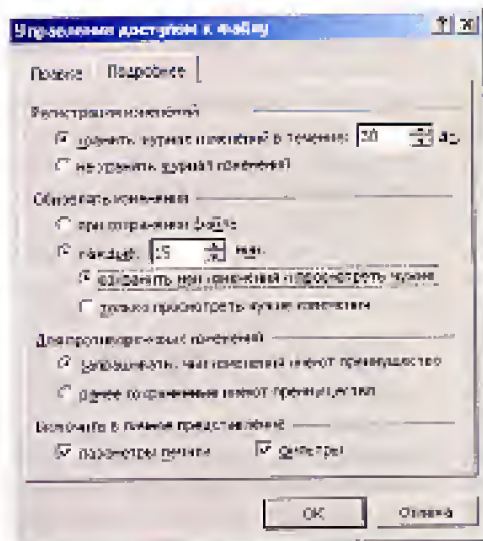 Управление доступом к файлу
Правка Подробнее
Регистрация изменений
хранить журнал изменений в течение: 30 дн.
не хранить журнал изменений
Обновлять изменения
при сохранении файла
каждые: 15 мин.
сохранить мои изменения и просмотреть чужие
только просмотреть чужие изменения
Для противоречивых изменений
запрашивать, чьи изменения имеют преимущество
ранее сохраненные имеют преимущество
Включить в личное представление
параметры печати фильтры
ОК Отмена